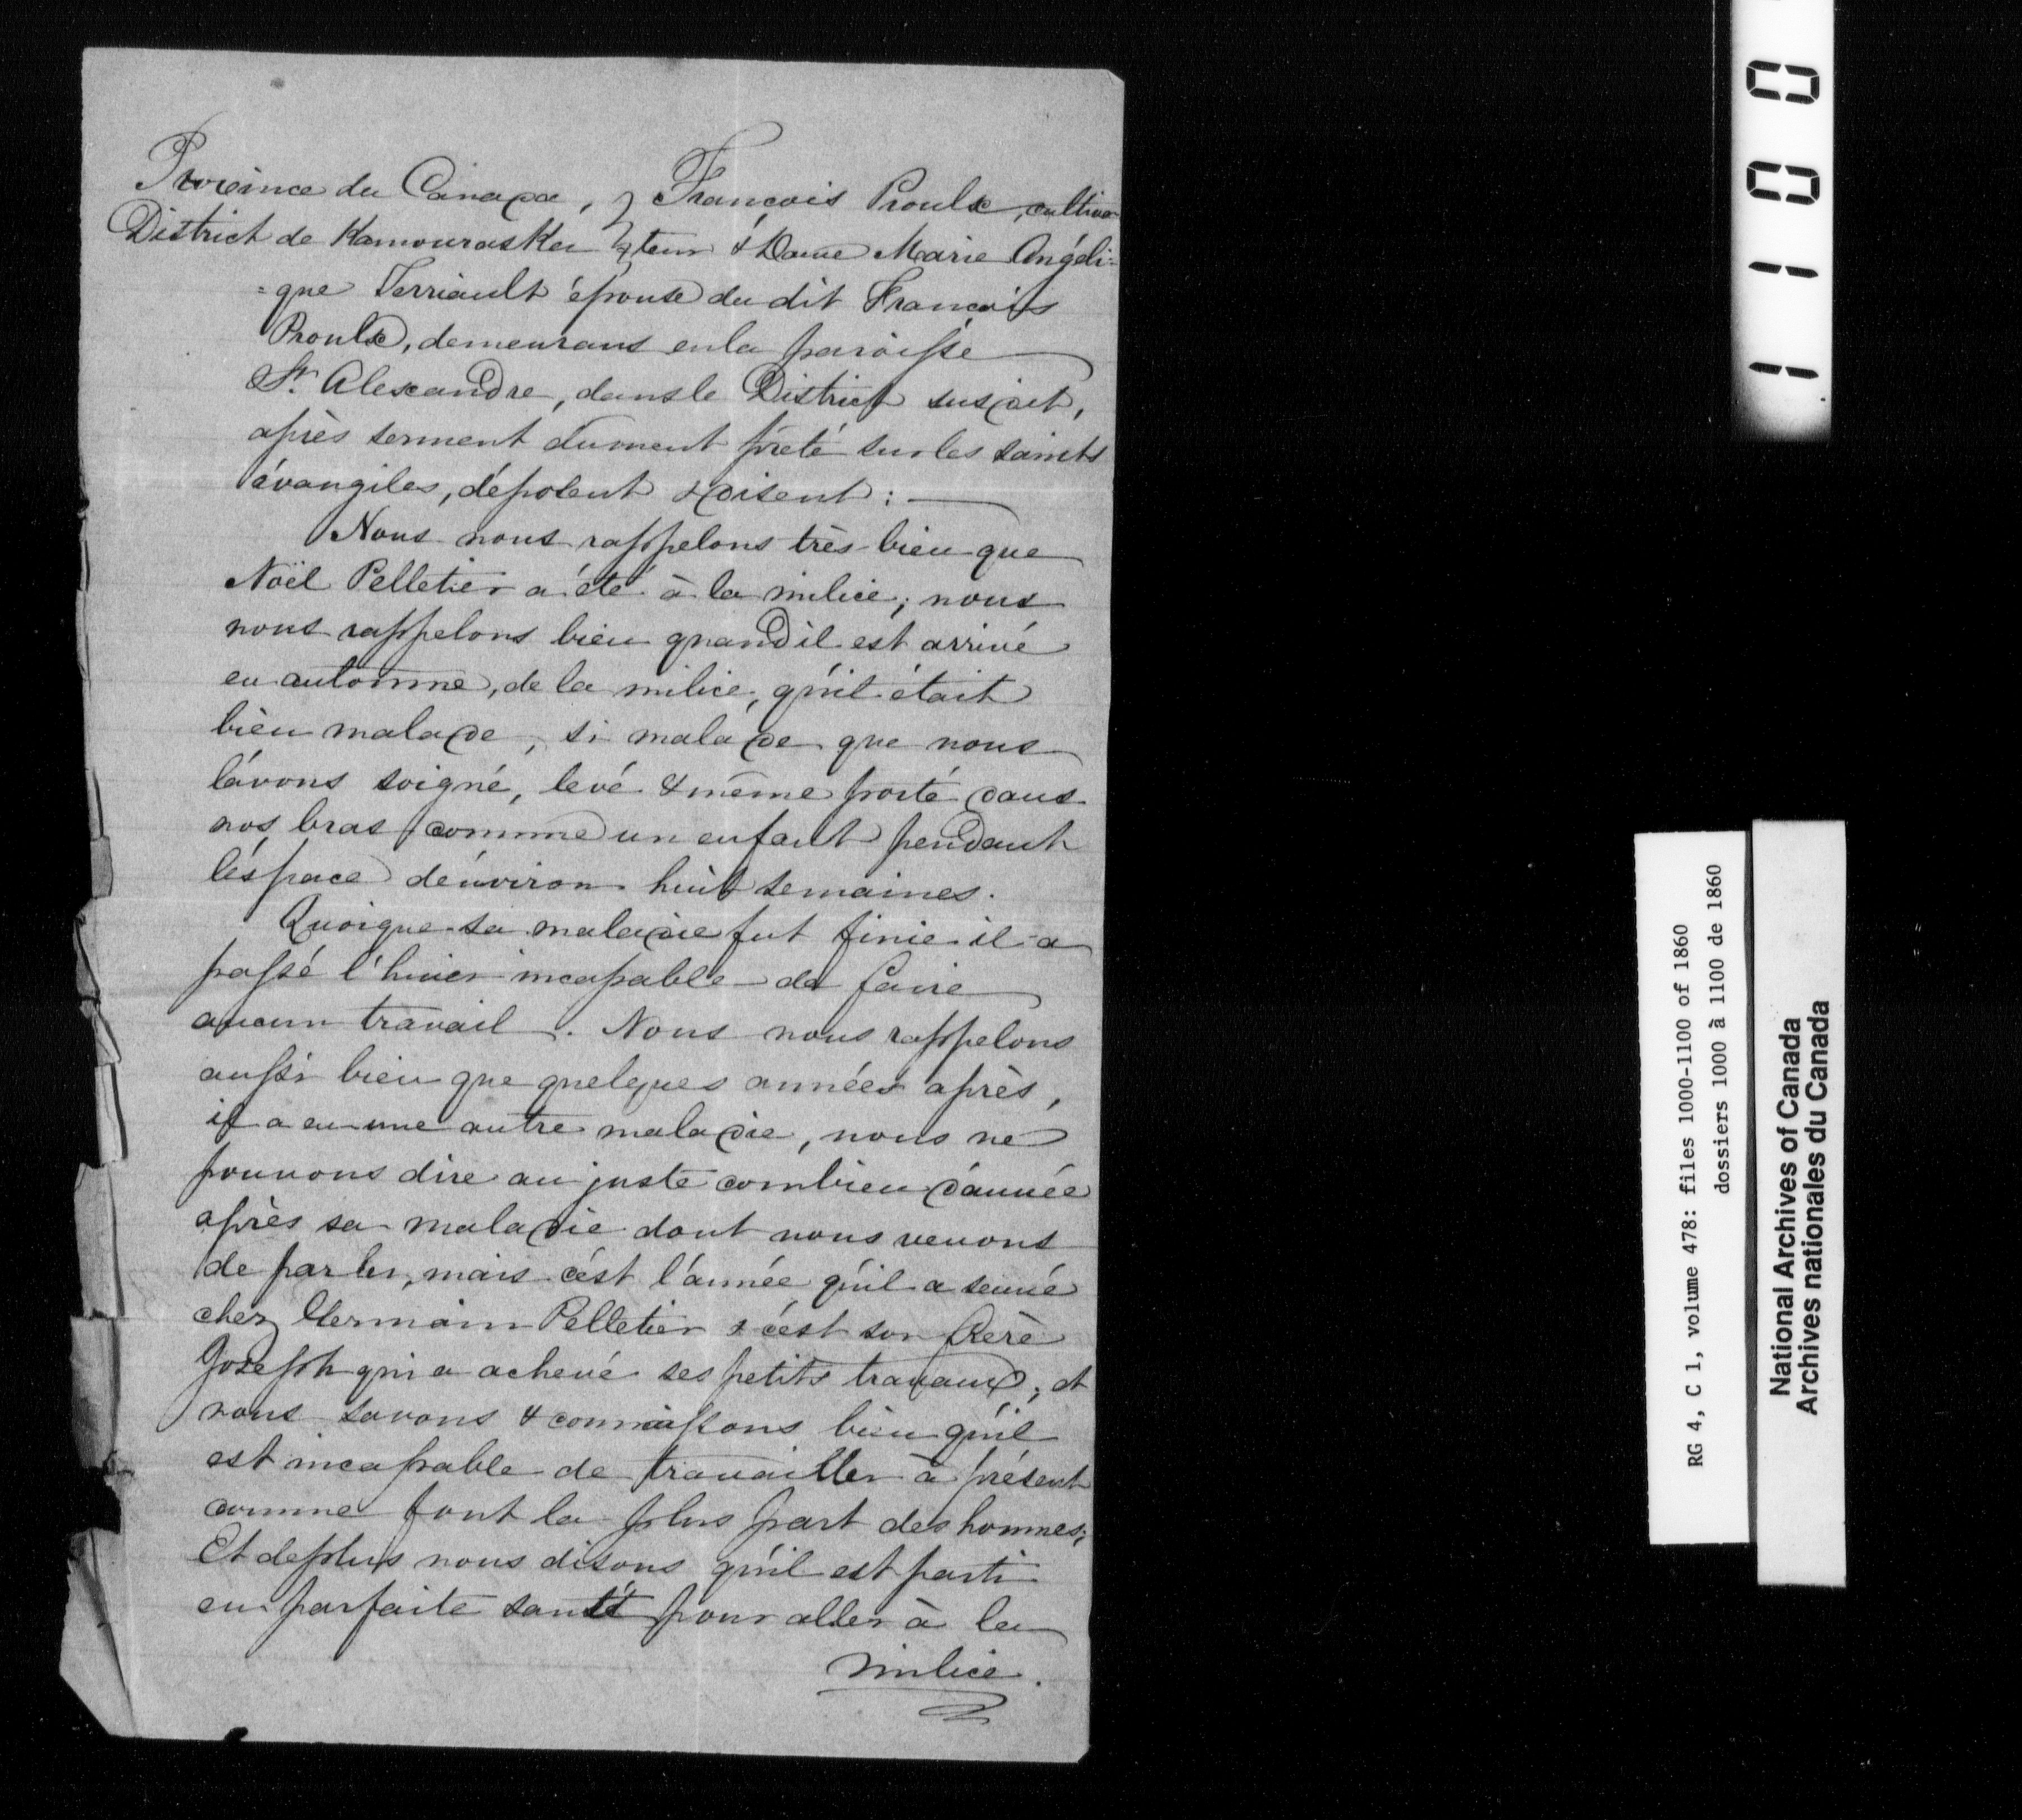 Province du Canada, } François Proulx, cultiva-
District de Kamouraska } teur & Dame Marie Angéli-
=que Terriault épouse du dit François
Proulx, demeurans en la paroisse
St. Alexandre, dans le District susdit,
après serment dument prêté sur les saints
évangiles, déposent & disent :
Nous nous rappelons très-bien que
Noël Pelletier a été à la milice; nous
nous rappelons bien quand il est arrivé
en automne, de la milice, qu'il était
bien malade, si malade que nous
l'avons soigné, levé & même porté dans
nos bras comme un enfant pendant
l'éspace d'environ huit semaines.
Quoique sa maladie fut finie il a
passé l'hiver incapable de faire
aucun travail. Nous nous rappelons
aussi bien que quelques années après,
il a eu une autre maladie, nous ne
pouvons dire au juste combien d'année
après sa maladie dont nous venons
de parler, mais c'est l'année qu'il a semé
chez Germain Pelletier & c'est son frère
Joseph qui a achevé ses petits travaux; et
nous savons & connaissons bien qu'il
est incapable de travailler à présent
comme font la plus part des hommes;
Et deplus nous disons qu'il est parti
en parfaite santé pour aller à la
milice.
1100
RG 4, C 1, volume 478: files 1000-1100 of 1860
dossiers 1000 à 1100 de 1860
National Archives of Canada
Archives nationales du Canada